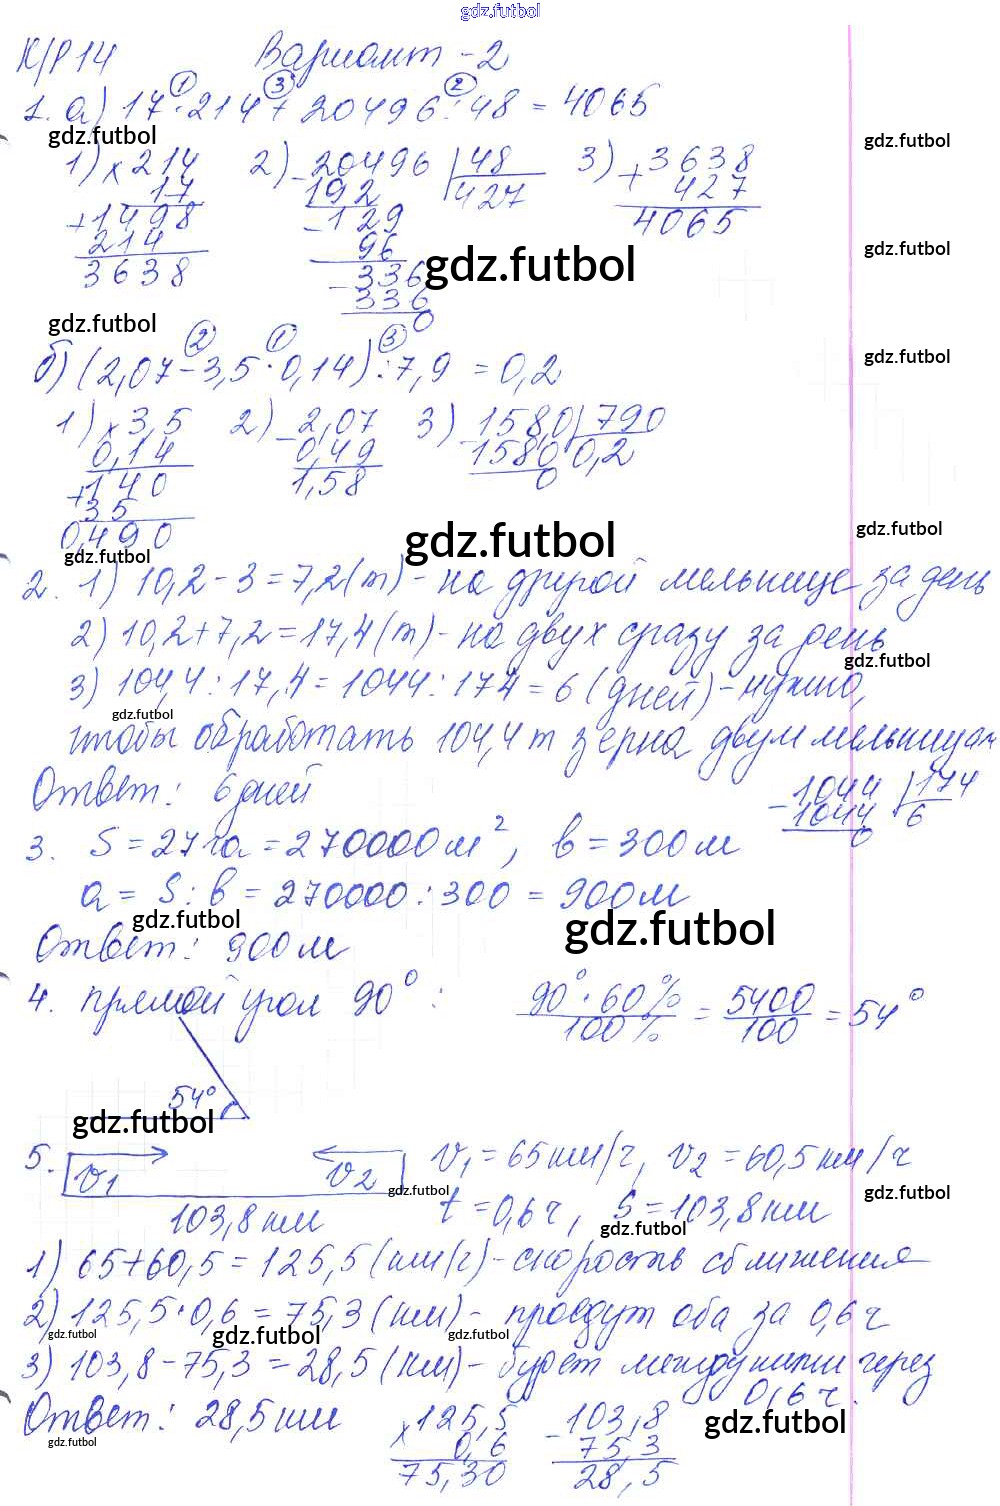 gdz.futbol
К/Р 14 Вариант - 2
1. а) 17 · 214 + 20496 : 48 = 4065
① ③ ②
gdz.futbol
gdz.futbol
1) × 214 2) - 20496 | 48 3) + 3638
17 192 427 427
+ 1498 - 129 4065
214 96
3638 - 336
336
0
gdz.futbol
gdz.futbol
gdz.futbol
② ① ③
б) (2,07 - 3,5 · 0,14) : 7,9 = 0,2
gdz.futbol
1) × 3,5 2) - 2,07 3) - 158,0 | 790
0,14 0,49 1580 0,2
+ 140 1,58 0
35
0,490
gdz.futbol
gdz.futbol
gdz.futbol
2. 1) 10,2 - 3 = 7,2 (т) - на другой мельнице за день
2) 10,2 + 7,2 = 17,4 (т) - на двух сразу за день
gdz.futbol
3) 104,4 : 17,4 = 1044 : 174 = 6 (дней) - нужно,
gdz.futbol
чтобы обработать 104,4 т зерна двум мельницам
Ответ: 6 дней
- 1044 | 174
1044 6
0
3. S = 27 га = 270000 м², b = 300 м
a = S : b = 270000 : 300 = 900 м
gdz.futbol
gdz.futbol
Ответ: 900 м
4. прямой угол 90° : 90° · 60% / 100% = 5400 / 100 = 54°
54°
gdz.futbol
5. v₁ v₂ v₁ = 65 км/ч, v₂ = 60,5 км/ч
gdz.futbol
gdz.futbol
103,8 км t = 0,6 ч, S = 103,8 км
gdz.futbol
1) 65 + 60,5 = 125,5 (км/ч) - скорость сближения
2) 125,5 · 0,6 = 75,3 (км) - проедут оба за 0,6 ч
gdz.futbol
gdz.futbol
gdz.futbol
3) 103,8 - 75,3 = 28,5 (км) - будет между ними через
0,6 ч.
Ответ: 28,5 км
gdz.futbol
gdz.futbol
× 125,5 - 103,8
0,6 75,3
75,30 28,5